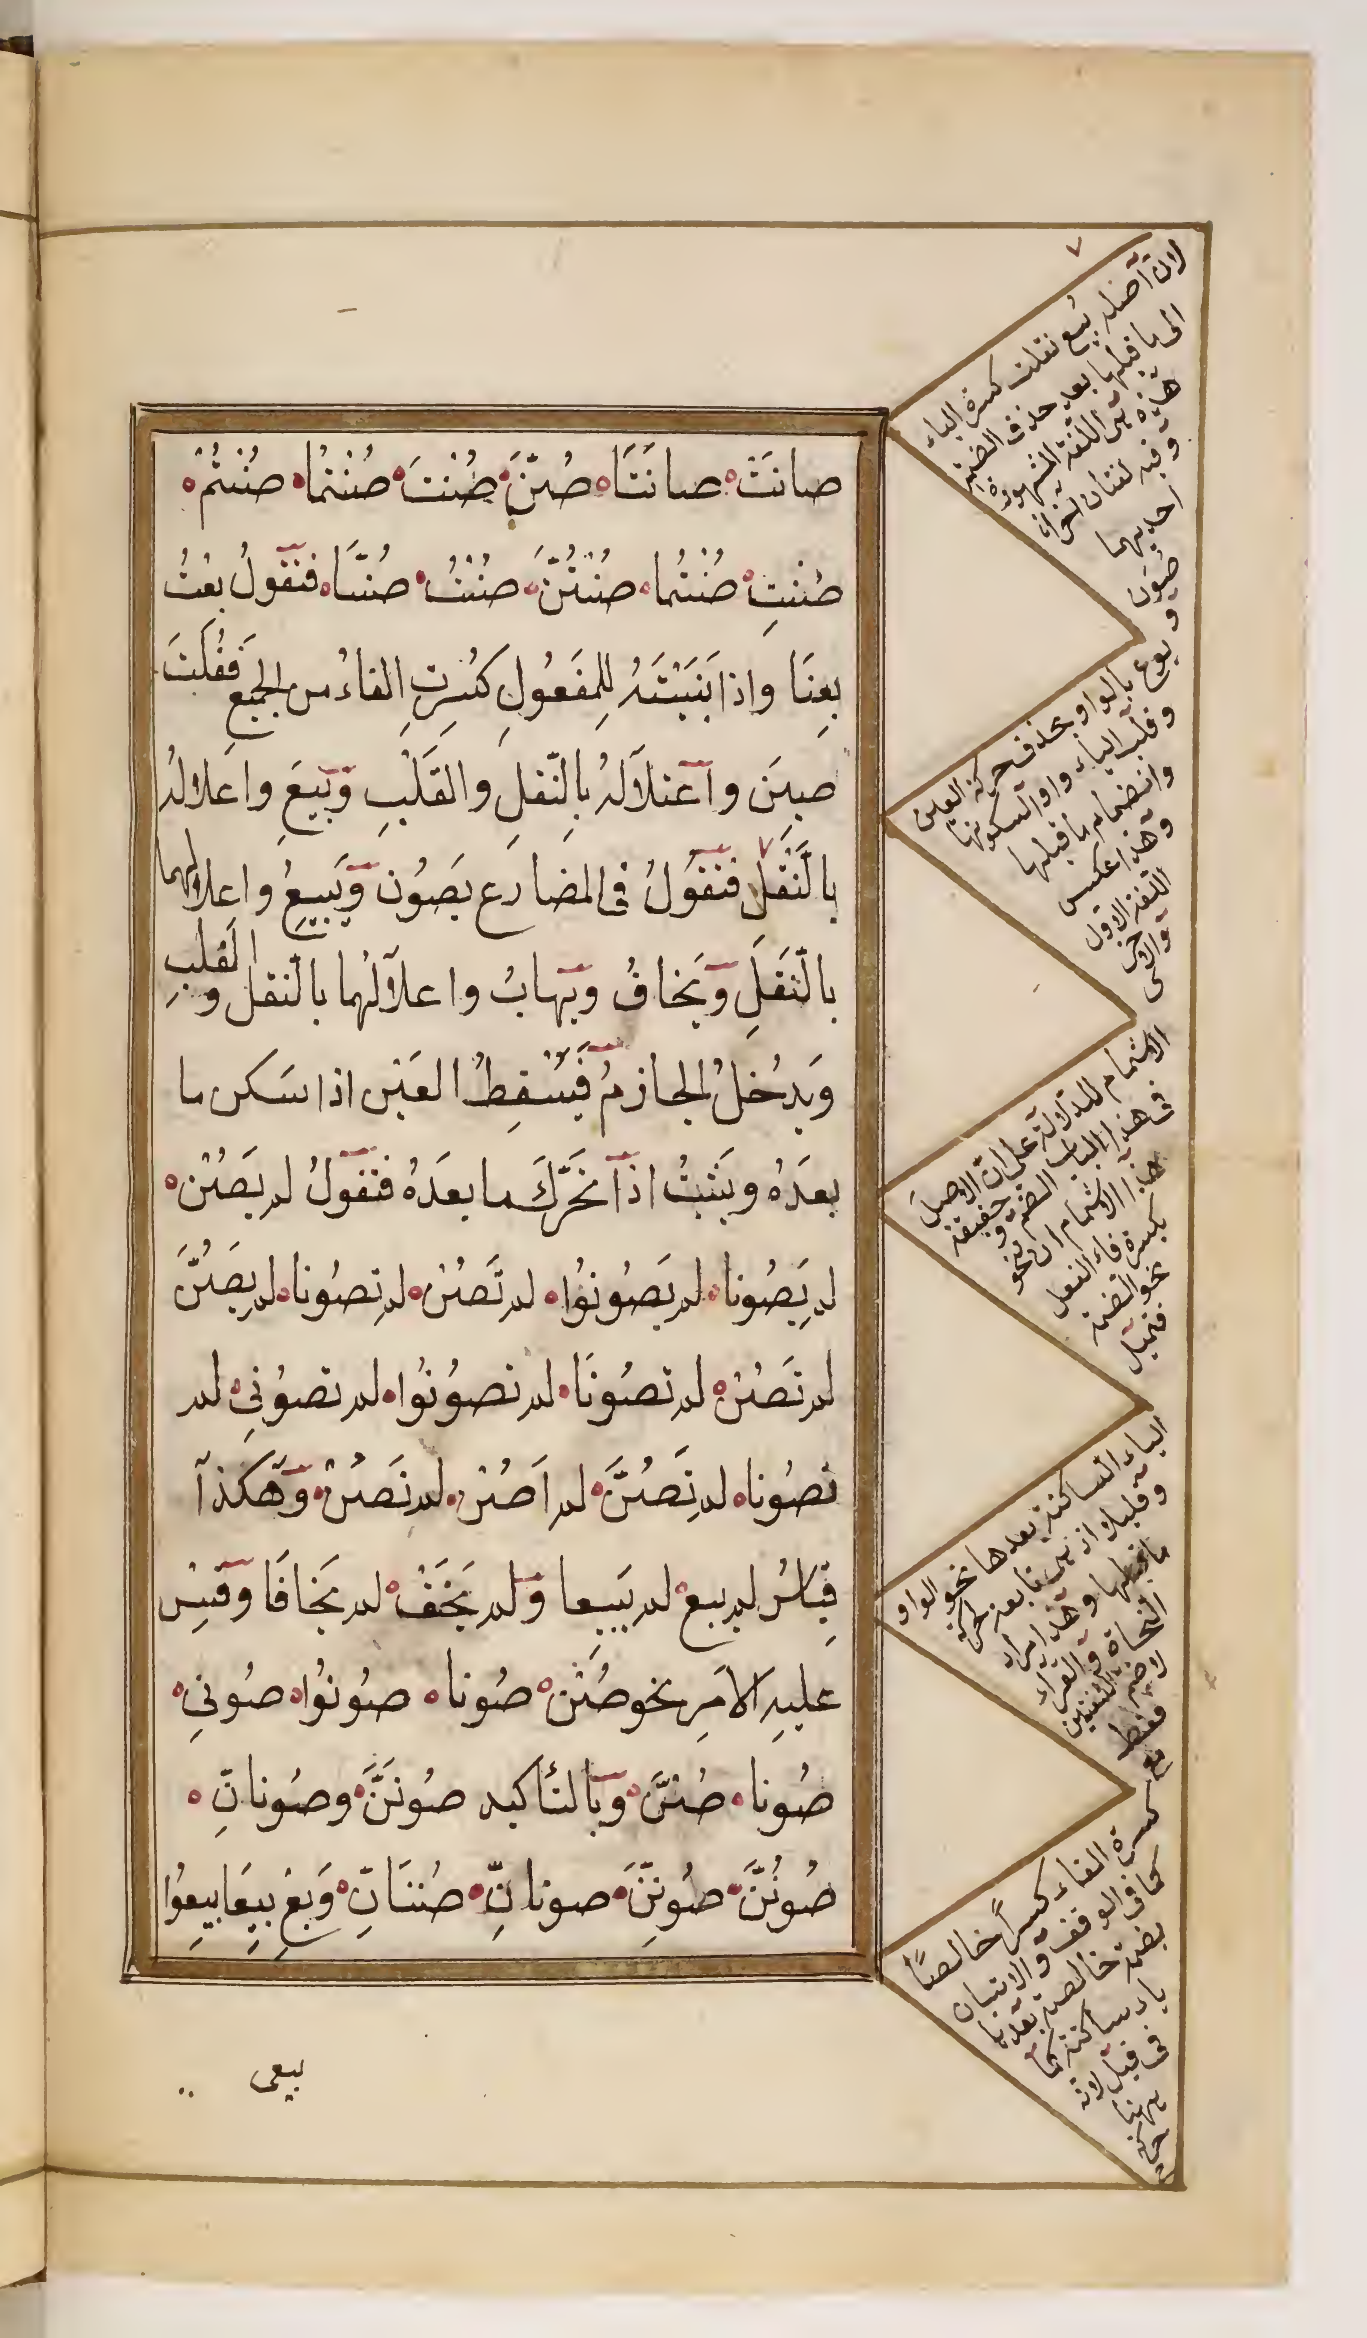 صانَتْ ۰ صانَتَا ۰ صُنَّ ۰ صُنْتَ ۰ صُنْتُما ۰ صُنْتُمْ ۰
صُنْتِ ۰ صُنْتُما ۰ صُنْتُنَّ ۰ صُنْتُ ۰ صُنَّا ۰ فتقولُ بِعْتُ
بِعنَا واذا بَنَيْتَهُ لِلمَفعُولِ كَسَرتَ الفاءَ من الجميعِ فقُلتَ
صِينَ واعتلالهُ بالنّقلِ والقَلْبِ وبِيعَ واعلالهُ
بالنَّقْلِ فتقولُ فى المضارع يَصُون ويَبِيعُ واعلالهما
بالنّقَلِ ويَخافُ ويَهابُ واعلالهُما بالنّقل والقلبِ
وَيدخُلُ الجازمُ فَيَسْقِطُ العَيْن اذا سَكن ما
بعدَهُ ويَثبتُ اذا تَحَرَّكَ ما بعدَهُ فتقولُ لم يَصُنْ ۰
لم يَصُونا ۰ لم يَصُونُوا ۰ لم تَصُنْ ۰ لم تصُونا ۰ لم يَصُنَّ
لم تَصُنْ ۰ لم تصُونَا ۰ لم تصُونُوا ۰ لم تصوُنِى ۰ لم
تصُونا ۰ لم تَصُنَّ ۰ لم اَصُنْ ۰ لم نَصُنْ ۰ وهكذا
قِيَاسُ لم يبع ۰ لم يَبِيعا ولم يَخَفْ ۰ لم يَخافَا وقِسْ
عليهِ الامَر نحو صُنْ ۰ صُونا ۰ صوُنُوا ۰ صوُنىِ ۰
صُونا ۰ صُنَّ ۰ وبالتأكيد صوُنَنَّ ۰ وصوُنانِّ ۰
صُونُنَّ ۰ صُونِنَّ ۰ صونانِّ ۰ صُننَانِّ ۰ وَبِعْ بِيعَا بِيعوُا
بيعى
لان اصله بُيِع نقلت كسرة الياء
الى ما قبلها بعد حذف الضمة
هذه هى اللغة المشهورة
وفيه لغتان اخران
احديهما
صُون
و
بوع بالواو بحذف حركة العين
وقلب الياء واوا لسكونها
وانضمام ما قبلها
وهذا عكس
اللغة الاول
والاخرى
الاشمام للدلالة على ان الاصل
فى هذا الباب الضم وحقيقة
هذا الاشمام ان تنحو
بكسرة فاء الفعل
نحو الضمة
فتميل
الياء الساكنة بعدها نحو الواو
وقليلا اذ هى تابعة لحركة
ما قبلها وهذا مراد
النحاة والقراء
لا ضم الشفتين
فقط
مع
كسرة الفاء كسراً خالصًا
كما فى الوقف والاتيان
بضمة خالصة بعدها
ياء ساكنة كما
فى قيل لانه
ههنا
حركة